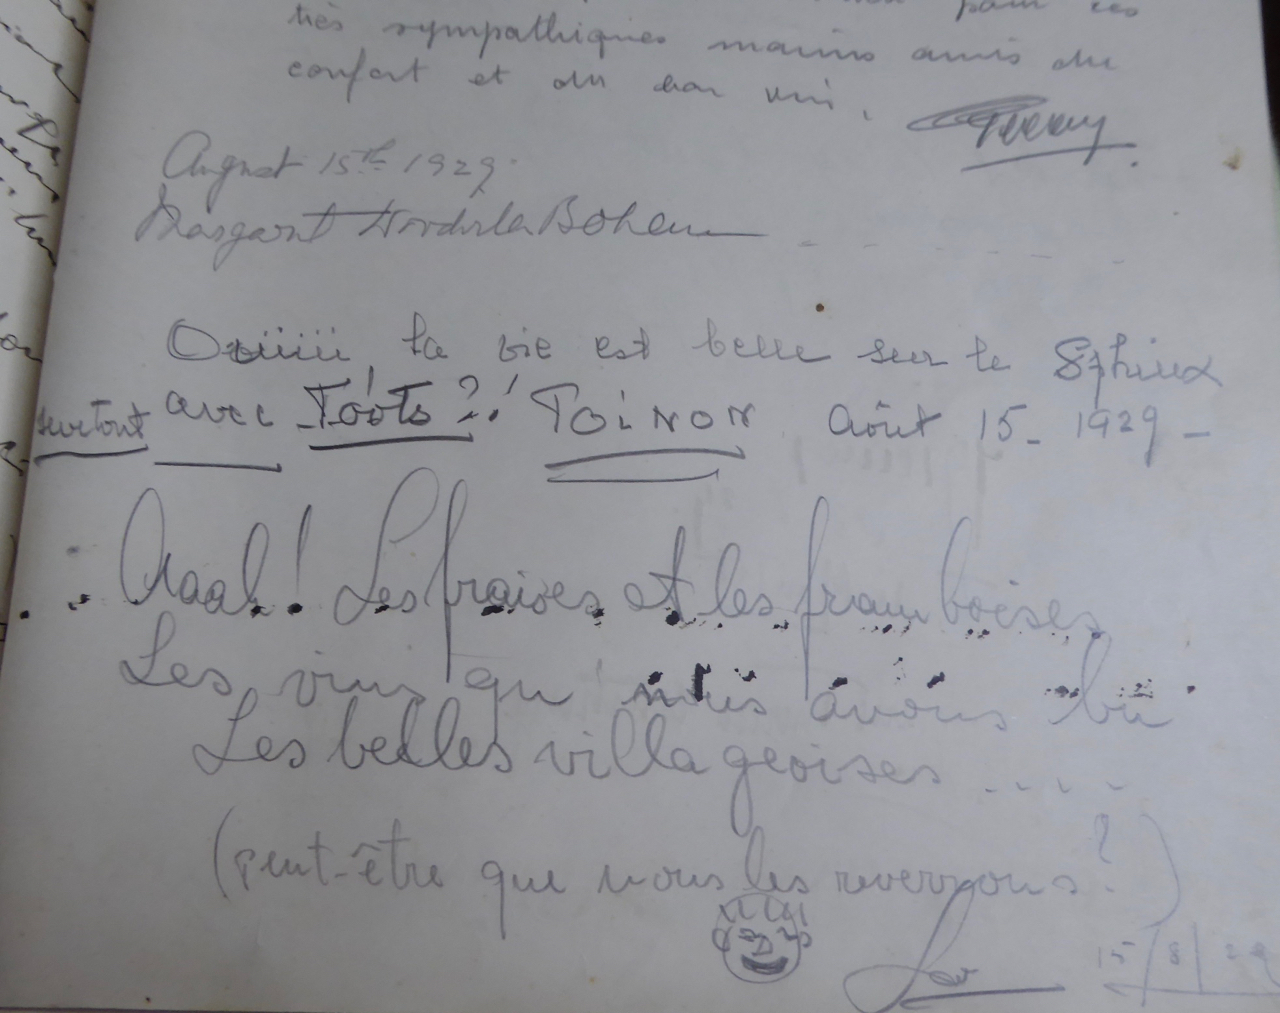 pour ces
très sympathiques marins amis du
confort et du bon vin.
August 15th 1929.
Margaret
Ouiiiii, la vie est belle sur le Sphinx
surtout avec Toots?! TOiNON Août 15 - 1929 -
Aaah! Les fraises et les framboises
Les vins qu' nous avons bu
Les belles villageoises ....
(peut-être que nous les reverrons?)
15/8/29